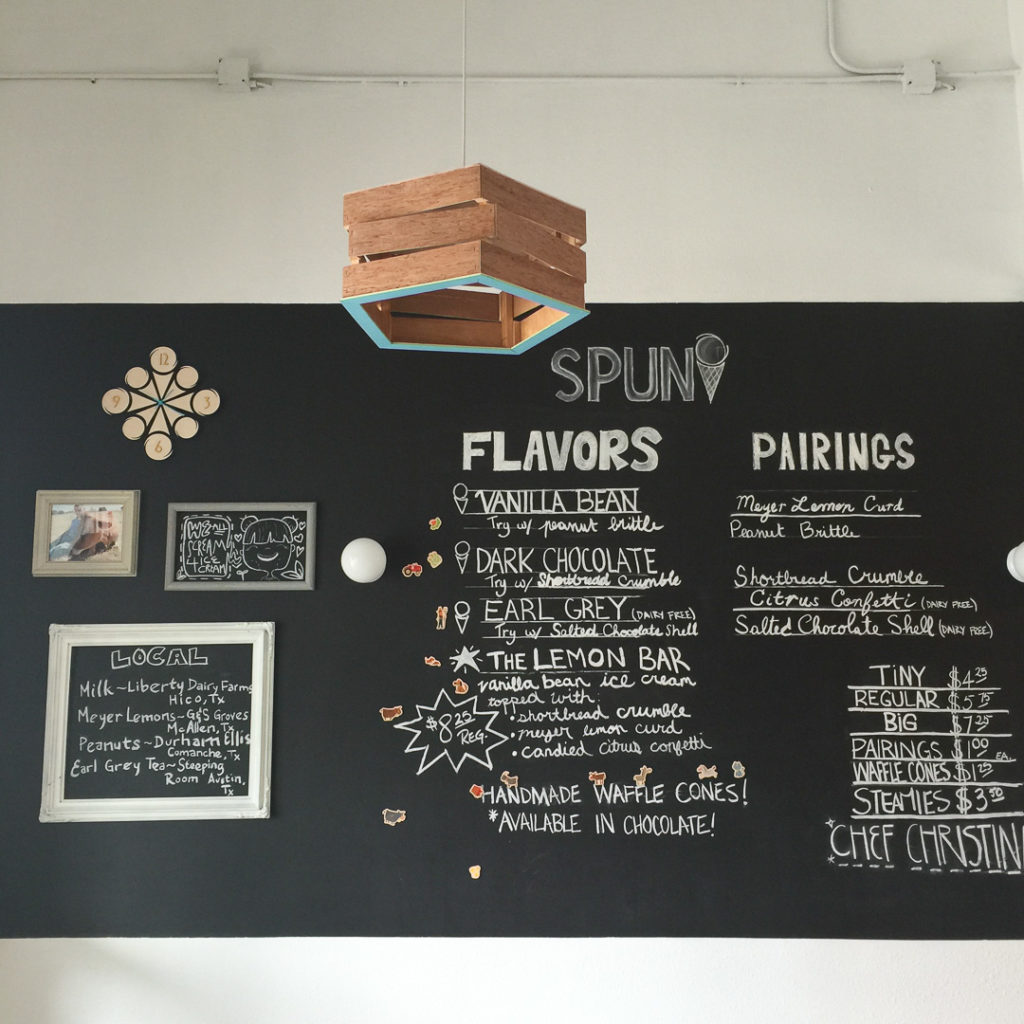 SPUN
FLAVORS
VANILLA BEAN
Try w/ peanut brittle
DARK CHOCOLATE
Try w/ Shortbread Crumble
EARL GREY (DAIRY FREE)
Try w/ Salted Chocolate Shell
THE LEMON BAR
vanilla bean ice cream
topped with:
• shortbread crumble
• meyer lemon curd
• candied citrus confetti
$8.25
REG.
HANDMADE WAFFLE CONES!
*AVAILABLE IN CHOCOLATE!
PAIRINGS
Meyer Lemon Curd
Peanut Brittle
Shortbread Crumble
Citrus Confetti (DAIRY FREE)
Salted Chocolate Shell (DAIRY FREE)
TINY $4.25
REGULAR $5.75
BIG $7.25
PAIRINGS $1.00 EA.
WAFFLE CONES $1.25
STEAMIES $3.50
*CHEF CHRISTIN
12
3
6
9
WE ALL
SCREAM
4 ICE
CREAM
LOCAL
Milk ~ Liberty Dairy Farms
Hico, Tx
Meyer Lemons ~ G&S Groves
McAllen, Tx
Peanuts ~ Durham Ellis
Comanche, Tx
Earl Grey Tea ~ Steeping
Room Austin,
Tx